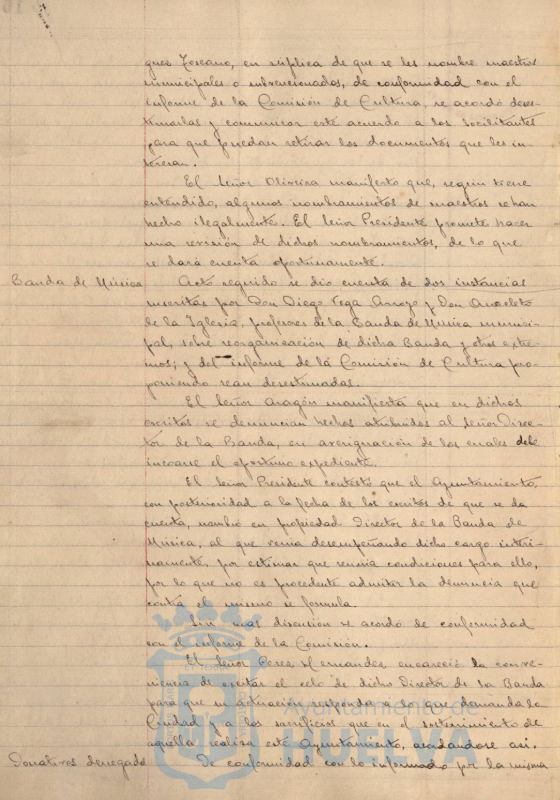 guez Toscano, en súplica de que se les nombre maestros
municipales o subvencionados, de conformidad con el
informe de la Comisión de Cultura, se acordó deses-
timarlas y comunicar este acuerdo a los solicitantes
para que puedan retirar los documentos que les in-
teresan.
El Señor Oliveira manifestó que, según tiene
entendido, algunos nombramientos de maestros se han
hecho ilegalmente. El Señor Presidente promete hacer
una revisión de dichos nombramientos, de lo que
se dará cuenta oportunamente.
Banda de Música
Acto seguido se dio cuenta de dos instancias
suscritas por Don Diego Vega Arroyo y Don Anacleto
de la Iglesia, profesores de la Banda de Música munici-
pal, sobre reorganización de dicha Banda y otros extre-
mos; y del informe de la Comisión de Cultura pro-
poniendo sean desestimadas.
El Señor Aragón manifiesta que en dichos
escritos se denuncian hechos atribuidos al Señor Direc-
tor de la Banda, en averiguación de los cuales debe
incoarse el oportuno expediente.
El Señor Presidente contestó que el Ayuntamiento,
con posterioridad a la fecha de los escritos de que se da
cuenta, nombró en propiedad Director de la Banda de
Música, al que venía desempeñando dicho cargo interi-
namente, por estimar que reunía condiciones para ello,
por lo que no es procedente admitir la denuncia que
contra el mismo se formula.
Sin mas discusión se acordó de conformidad
con el informe de la Comisión.
El Señor Perez Hernandez encareció la conve-
niencia de excitar el celo de dicho Director de la Banda
para que su actuación responda a lo que demanda la
Ciudad y a los sacrificios que en el sostenimiento de
aquella realiza este Ayuntamiento, acordandose así.
Donativos denegados
De conformidad con lo informado por la misma
Ayuntamiento de
HUELVA